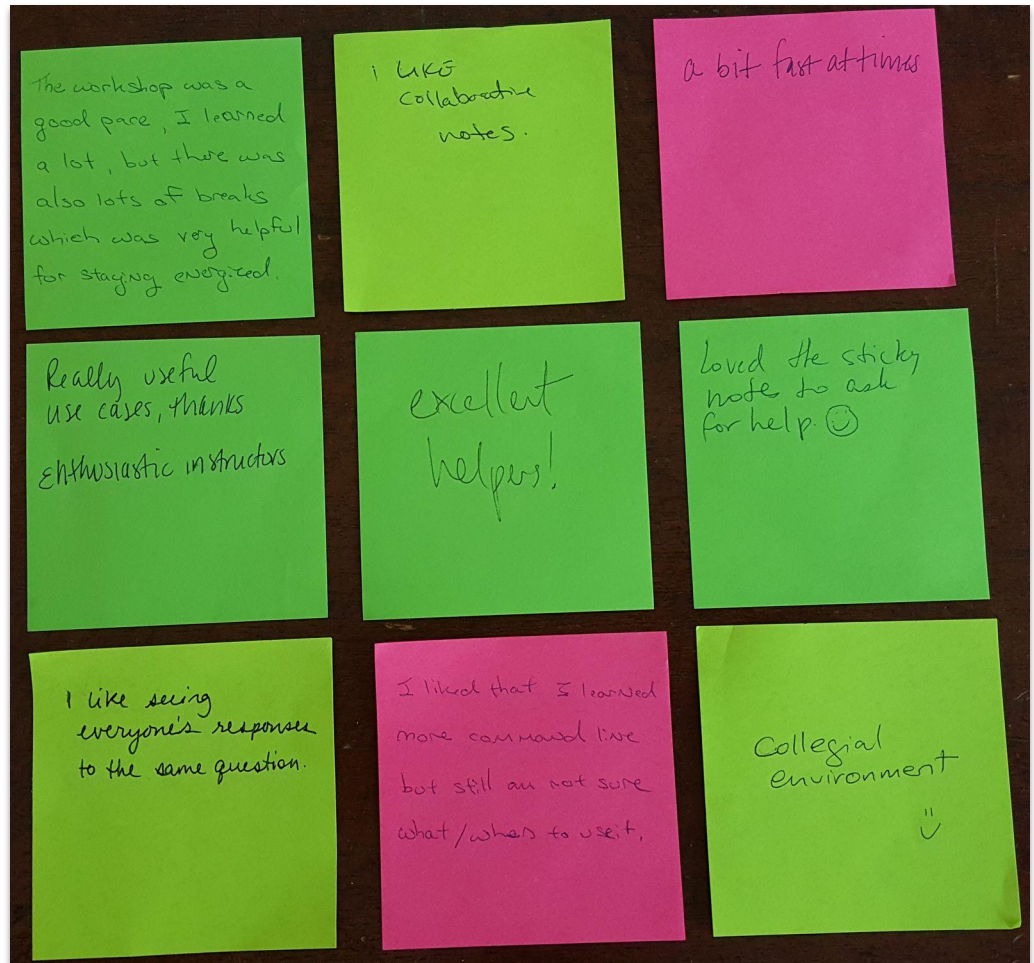 The workshop was a
good pace, I learned
a lot, but there was
also lots of breaks
which was very helpful
for staying energized.
i like
collaborative
notes.
a bit fast at times
Really useful
use cases, thanks
Enthusiastic instructors
excellent
helpers!
Loved the sticky
notes to ask
for help. ☺
I like seeing
everyone's responses
to the same question.
I liked that I learned
more command line
but still am not sure
what/when to use it.
Collegial
environment